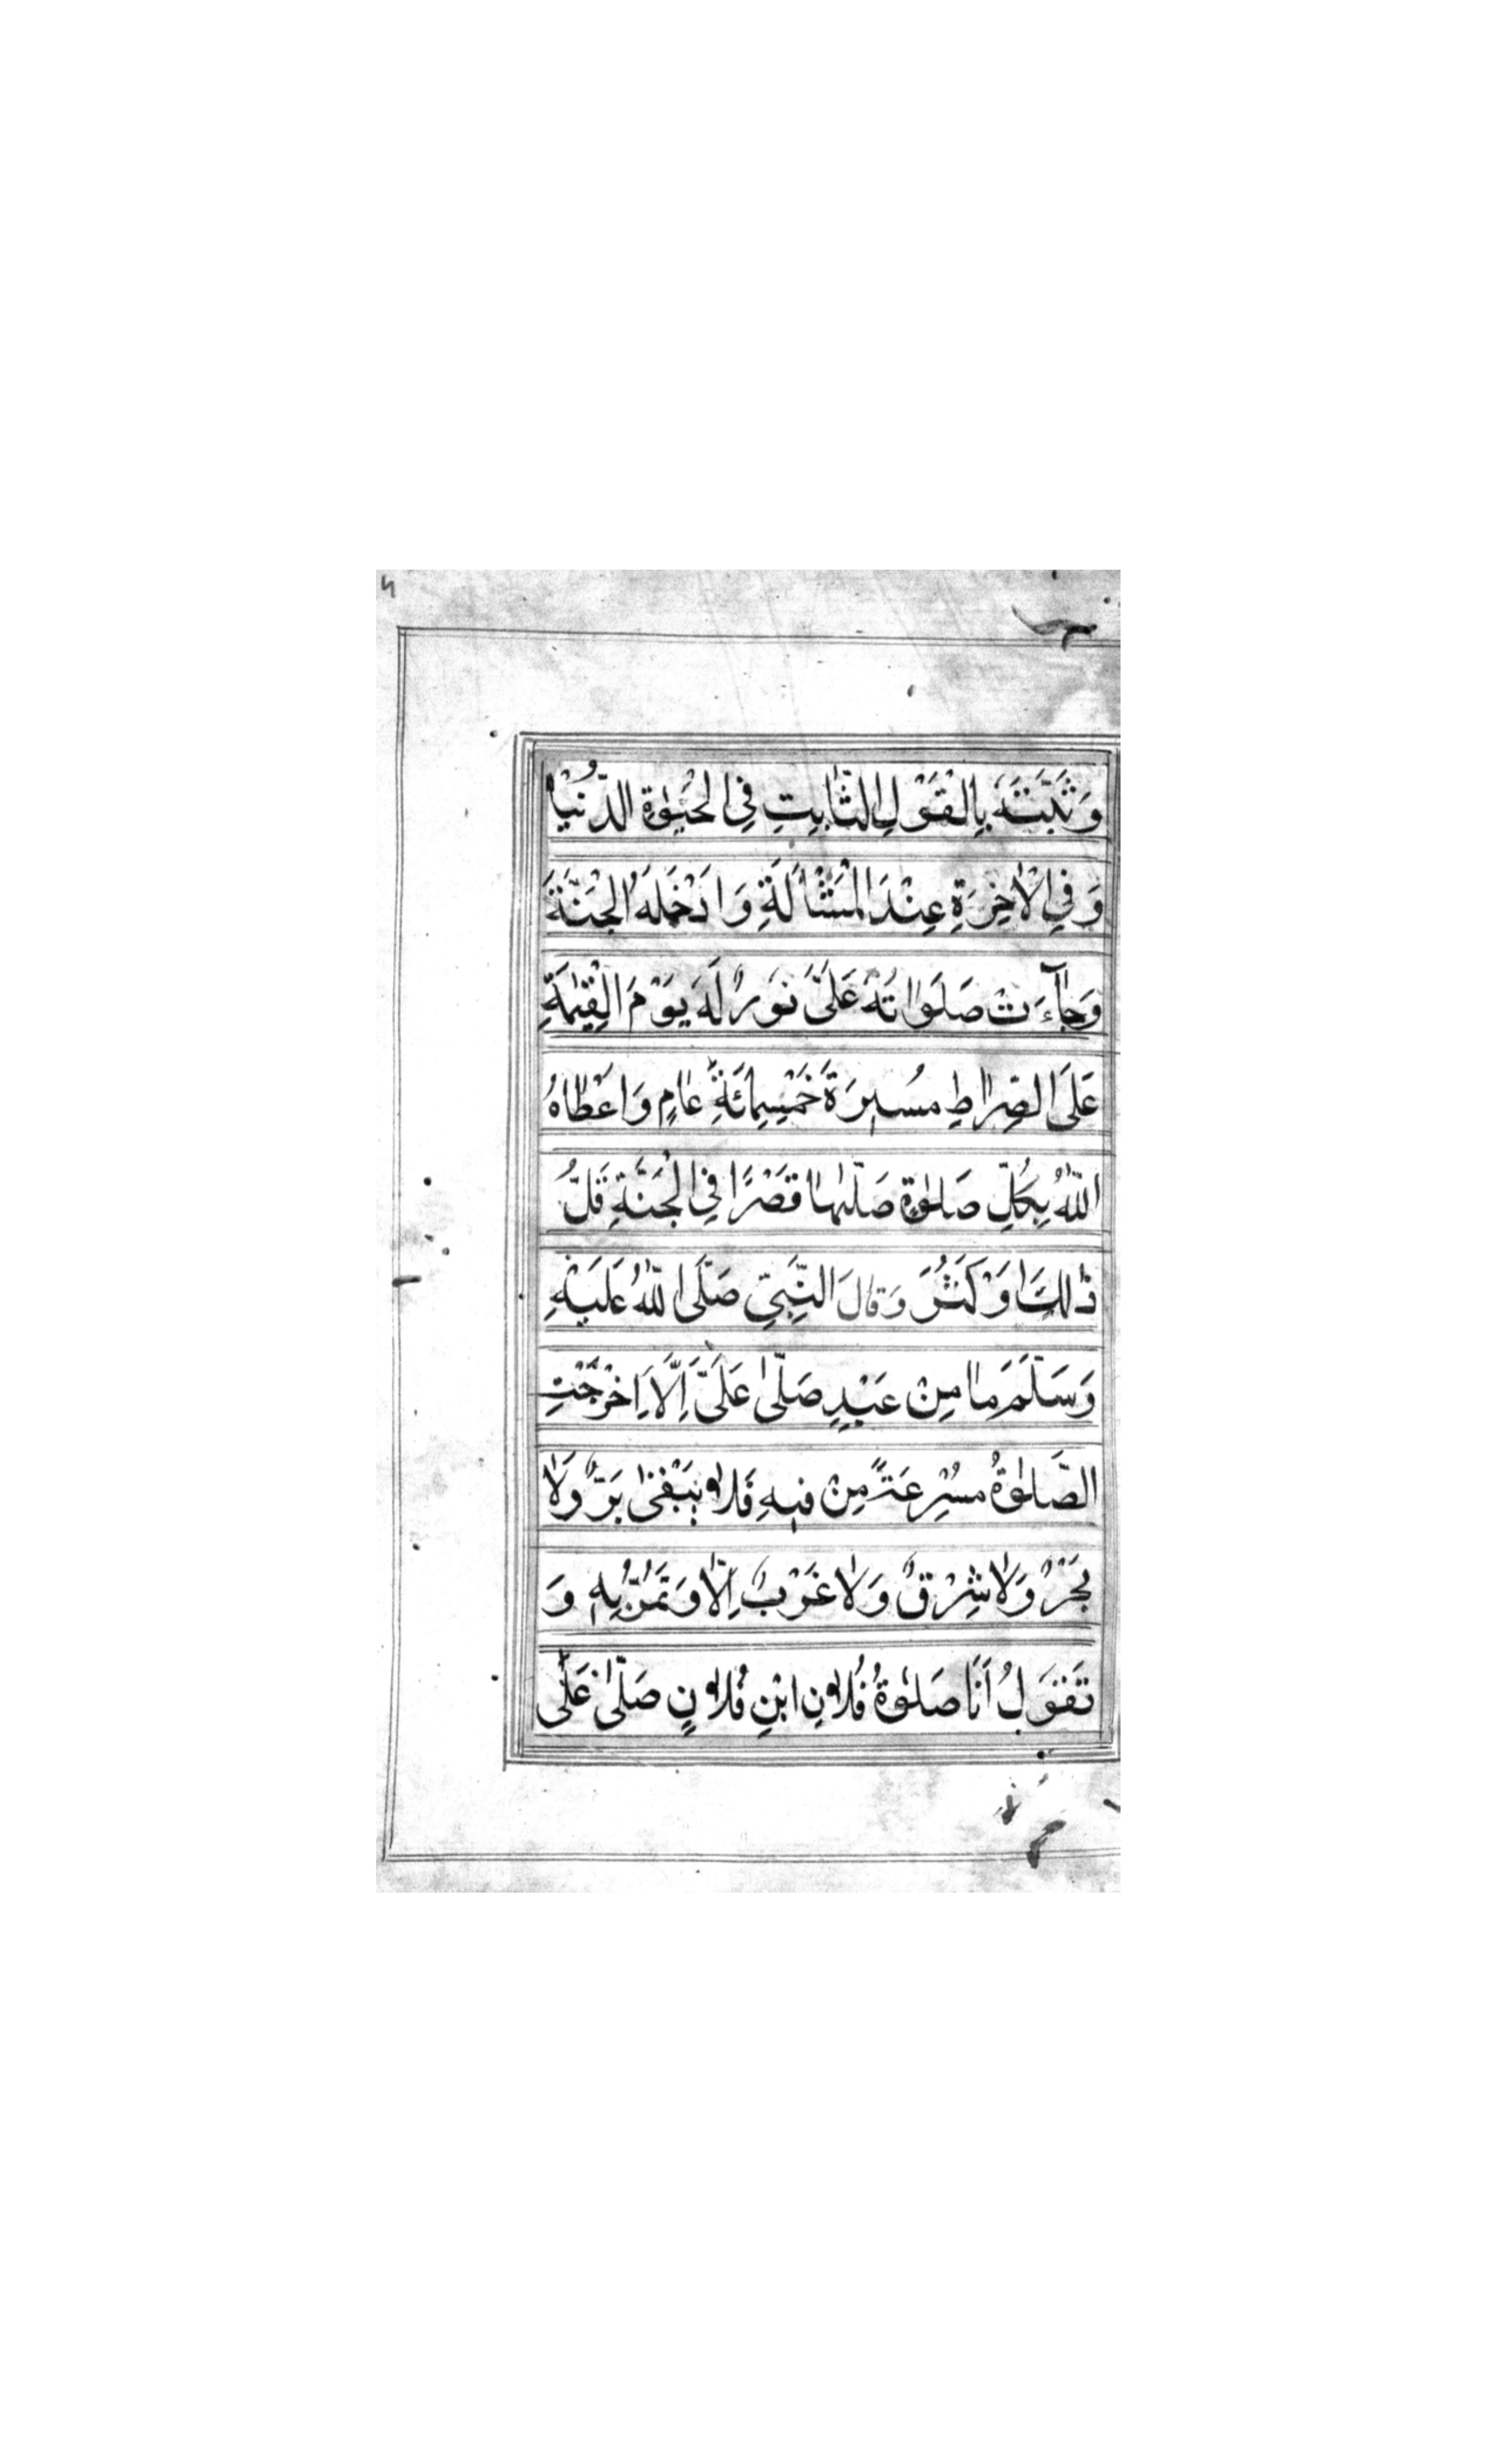 وَثَبَّتَهُ بِالْقَوْلِ الثَّابِتِ فِي الْحَيٰوةِ الدُّنْيَا
وَفِي الْاٰخِرَةِ عِنْدَ الْمَسْأَلَةِ وَاَدْخَلَهُ الْجَنَّةَ
وَجَآءَتْ صَلَوَاتُهُ عَلَيَّ نُوْرٌ لَهُ يَوْمَ الْقِيٰمَةِ
عَلَى الصِّرَاطِ مَسِيْرَةَ خَمْسِمِائَةِ عَامٍ وَاَعْطَاهُ
اللّٰهُ بِكُلِّ صَلٰوةٍ صَلّٰيهَا قَصْرًا فِي الْجَنَّةِ قَلَّ
ذٰلِكَ اَوْ كَثُرَ وَقَالَ النَّبِيِّ صَلَّى اللّٰهُ عَلَيْهِ
وَسَلَّمَ مَا مِنْ عَبْدٍ صَلّٰى عَلَيَّ اِلَّا خَرَجَتِ
الصَّلٰوةُ مُسْرِعَةً مِنْ فِيهِ فَلَا يَبْقٰى بَرٌّ وَلَا
بَحْرٌ وَلَا شَرْقٌ وَلَا غَرْبٌ اِلَّا وَتَمُرُّ بِهِ وَ
تَقُوْلُ اَنَا صَلٰوةُ فُلَانِ ابْنِ فُلَانٍ صَلّٰى عَلٰى